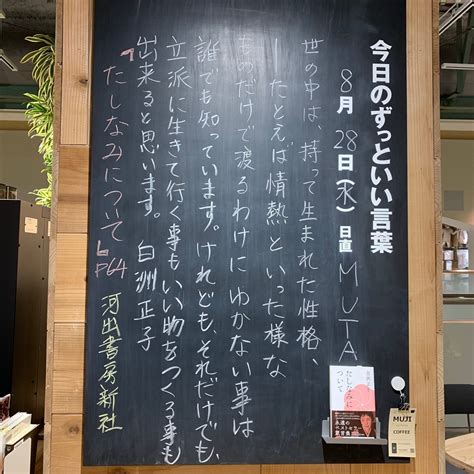 今日のずっといい言葉
8月28日(木)日直MUTA
世の中は、持って生まれた性格、
ーたとえば情熱といった様な
ものだけで渡るわけにゆかない事は
誰でも知っています。けれども、それだけでも、
立派に生きて行く事もいい物をつくる事も
出来ると思います。 白洲正子
『たしなみについて』P64 河出書房新社
たしなみに
ついて
永遠の
ベストセラー
MUJI
COFFEE